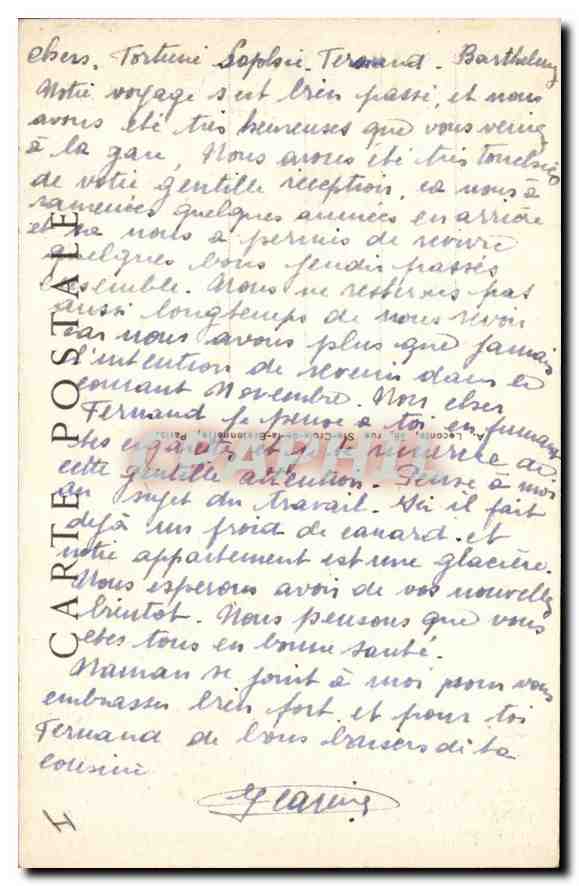 chers, Fortuné Sophie. Fernand. Barthelemy
Notre voyage s'est bien passé, et nous
avons été très heureuses que vous veniez
à la gare, Nous avons été très touchées
de votre gentille réception, ça nous a
ramenées quelques années en arrière
et ça nous a permis de revivre
quelques bons jeudis passés
ensemble. Nous ne resterons pas
aussi longtemps de nous revoir
car nous avons plus que jamais
l'intention de revenir dans le
courant Novembre. Mon cher
Fernand je pense a toi en fumant
tes et je te remercie de
cette gentille attention. Pense à moi
au sujet du travail. Ici il fait
déjà un froid de canard et
notre appartement est une glacière.
Nous esperons avoir de vos nouvelles
bientot. Nous pensons que vous
etes tous en bonne santé.
Maman se joint à moi pour vous
embrasser bien fort et pour toi
Fernand de bons baisers de ta
cousine
CARTE POSTALE
A. Leconte, 38, rue Ste-Croix-de-la-Bretonnerie, Paris.